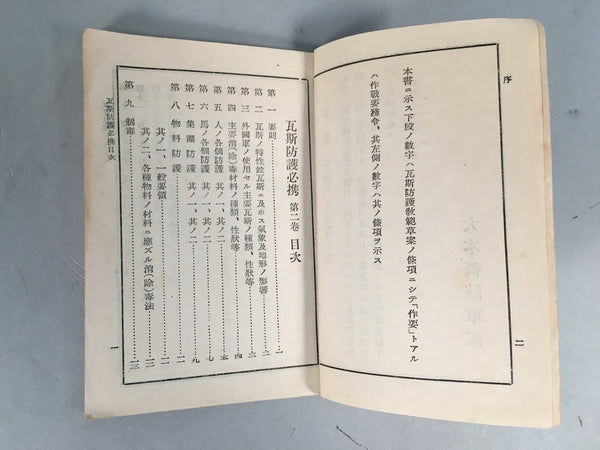 序
本書ニ示ス下段ノ數字ハ瓦斯防護敎範草案ノ條項ニシテ「作要」トアル
ハ作戰要務令、其左側ノ數字ハ其ノ條項ヲ示ス
二
瓦斯防護必携 第二卷 目次
第一 要則……一
第二 瓦斯ノ特性竝瓦斯ニ及ホス氣象及地形ノ影響……二
第三 外國軍ノ使用セル主要瓦斯ノ種類、性狀等……三
第四 主要消(除)毒材料ノ種類、性狀等……四
第五 人ノ各個防護 其ノ一、其ノ二……五
第六 馬ノ各個防護 其ノ一、其ノ二……七
第七 集團防護 其ノ一、其ノ二……九
第八 物料防護……一一
第九 制毒
其ノ一、一般要領……一一
其ノ二、各種物料ノ材料ニ應ズル消(除)毒法……一三
瓦斯防護必携目次
一